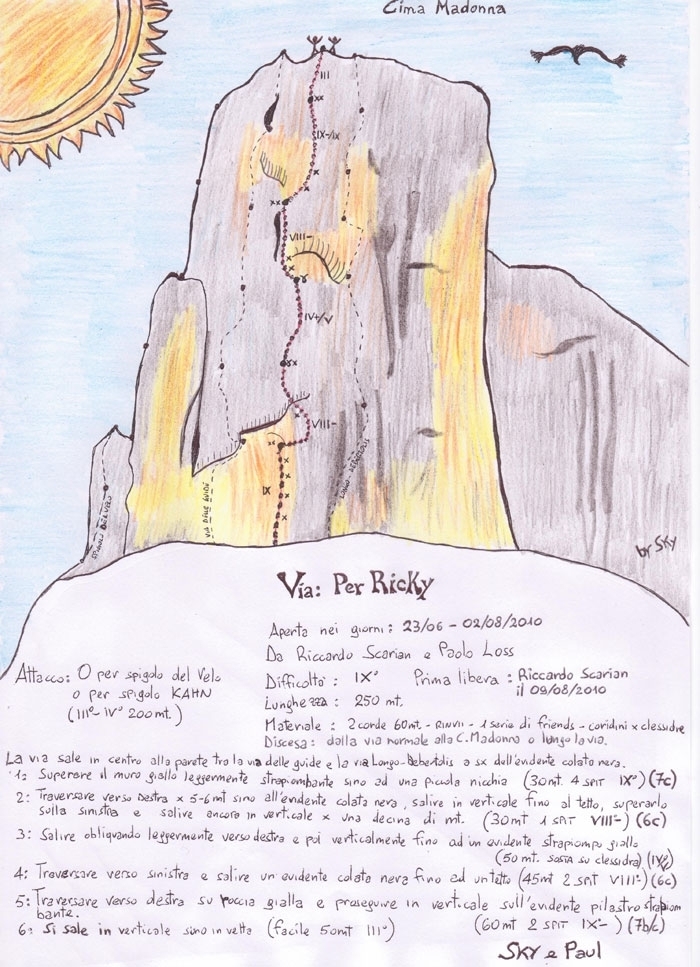 Cima Madonna
III
xx
IX-/IX
xx
VIII-
IV+/V
xx
VIII-
IX
SPIGOLO DEL VELO
VIA DELLE GUIDE
LONGO-DEBERTOLIS
by SKY
Via: Per Ricky
Aperta nei giorni: 23/06 - 02/08/2010
Da Riccardo Scarian e Paolo Loss
Attacco: O per spigolo del Velo
o per spigolo KAHN
(III°-IV° 200mt.)
Difficoltà: IX°
Prima libera: Riccardo Scarian
il 09/08/2010
Lunghezza: 250 mt.
Materiale: 2 corde 60mt. - RINVII - 1 serie di friends - cordini x clessidre
Discesa: dalla via normale alla C. Madonna o lungo la via.
La via sale in centro alla parete tra la via delle guide e la via Longo-Debertolis a sx dell'evidente colata nera.
1: Superare il muro giallo leggermente strapiombante sino ad una piccola nicchia (30mt. 4 SPIT IX°) (7c)
2: Traversare verso destra x 5-6 mt sino all'evidente colata nera, salire in verticale fino al tetto, superarlo
sulla sinistra e salire ancora in verticale x una decina di mt. (30mt 1 SPIT VIII-) (6c)
3: Salire obliquando leggermente verso destra e poi verticalmente fino ad un evidente strapiombo giallo
(50 mt. sosta su clessidra)
4: Traversare verso sinistra e salire un evidente colata nera fino ad un tetto (45mt 2 SPIT VIII-) (6c)
5: Traversare verso destra su roccia gialla e proseguire in verticale sull'evidente pilastro strapiom
bante. (60mt 2 SPIT IX-) (7b/c)
6: Si sale in verticale sino in vetta (facile 50mt III°)
SKY e Paul